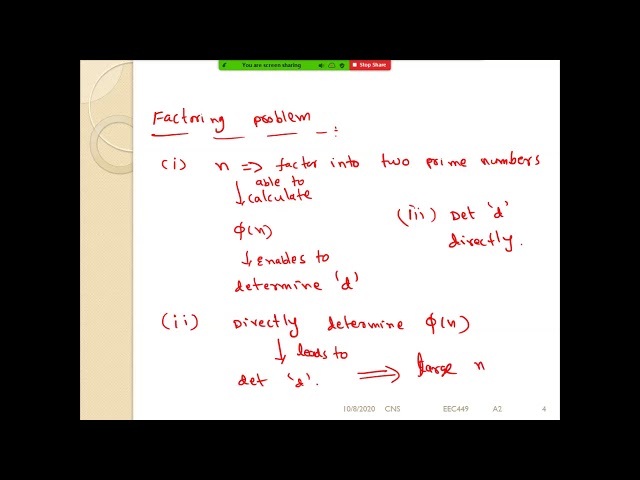 You are screen sharing Stop Share
Factoring problem :
(i) n => factor into two prime numbers
↓ able to calculate
φ(n)
↓ enables to
determine 'd'
(iii) Det 'd'
directly.
(ii) Directly determine φ(n)
↓ leads to
det 'd'. ⟹ large n
10/8/2020 CNS EEC449 A2 4